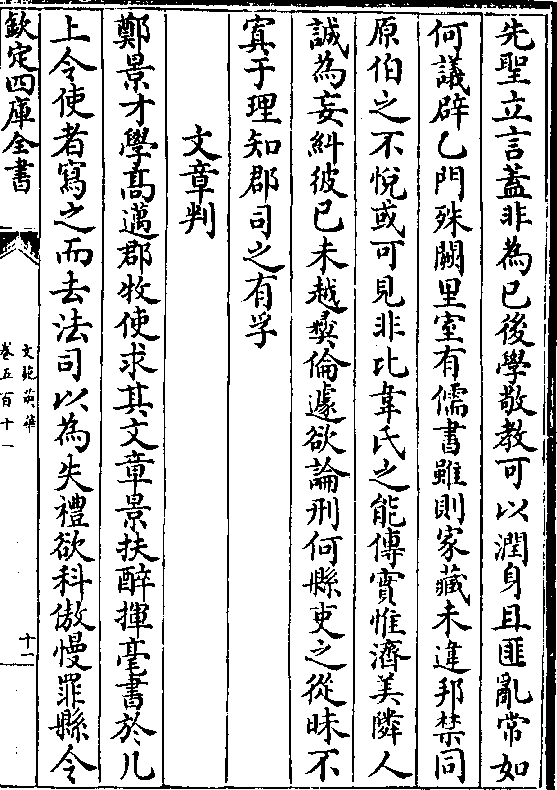 先聖立言蓋非為已後學敬教可以潤身且匪亂常如
何議辟乙門殊闕里室有儒書雖則家藏未違邦禁同
原伯之不悅或可見非比韋氏之能傳實惟濟美隣人
誠為妄糾彼已未越彝倫遽欲論刑何縣吏之從昧不
寘于理知郡司之有孚
文章判
鄭景才學高邁郡牧使求其文章景扶醉揮毫書於几
上令使者寫之而去法司以為失禮欲科傲慢罪縣令
欽定四庫全書
文苑英華
卷五百十一
十一